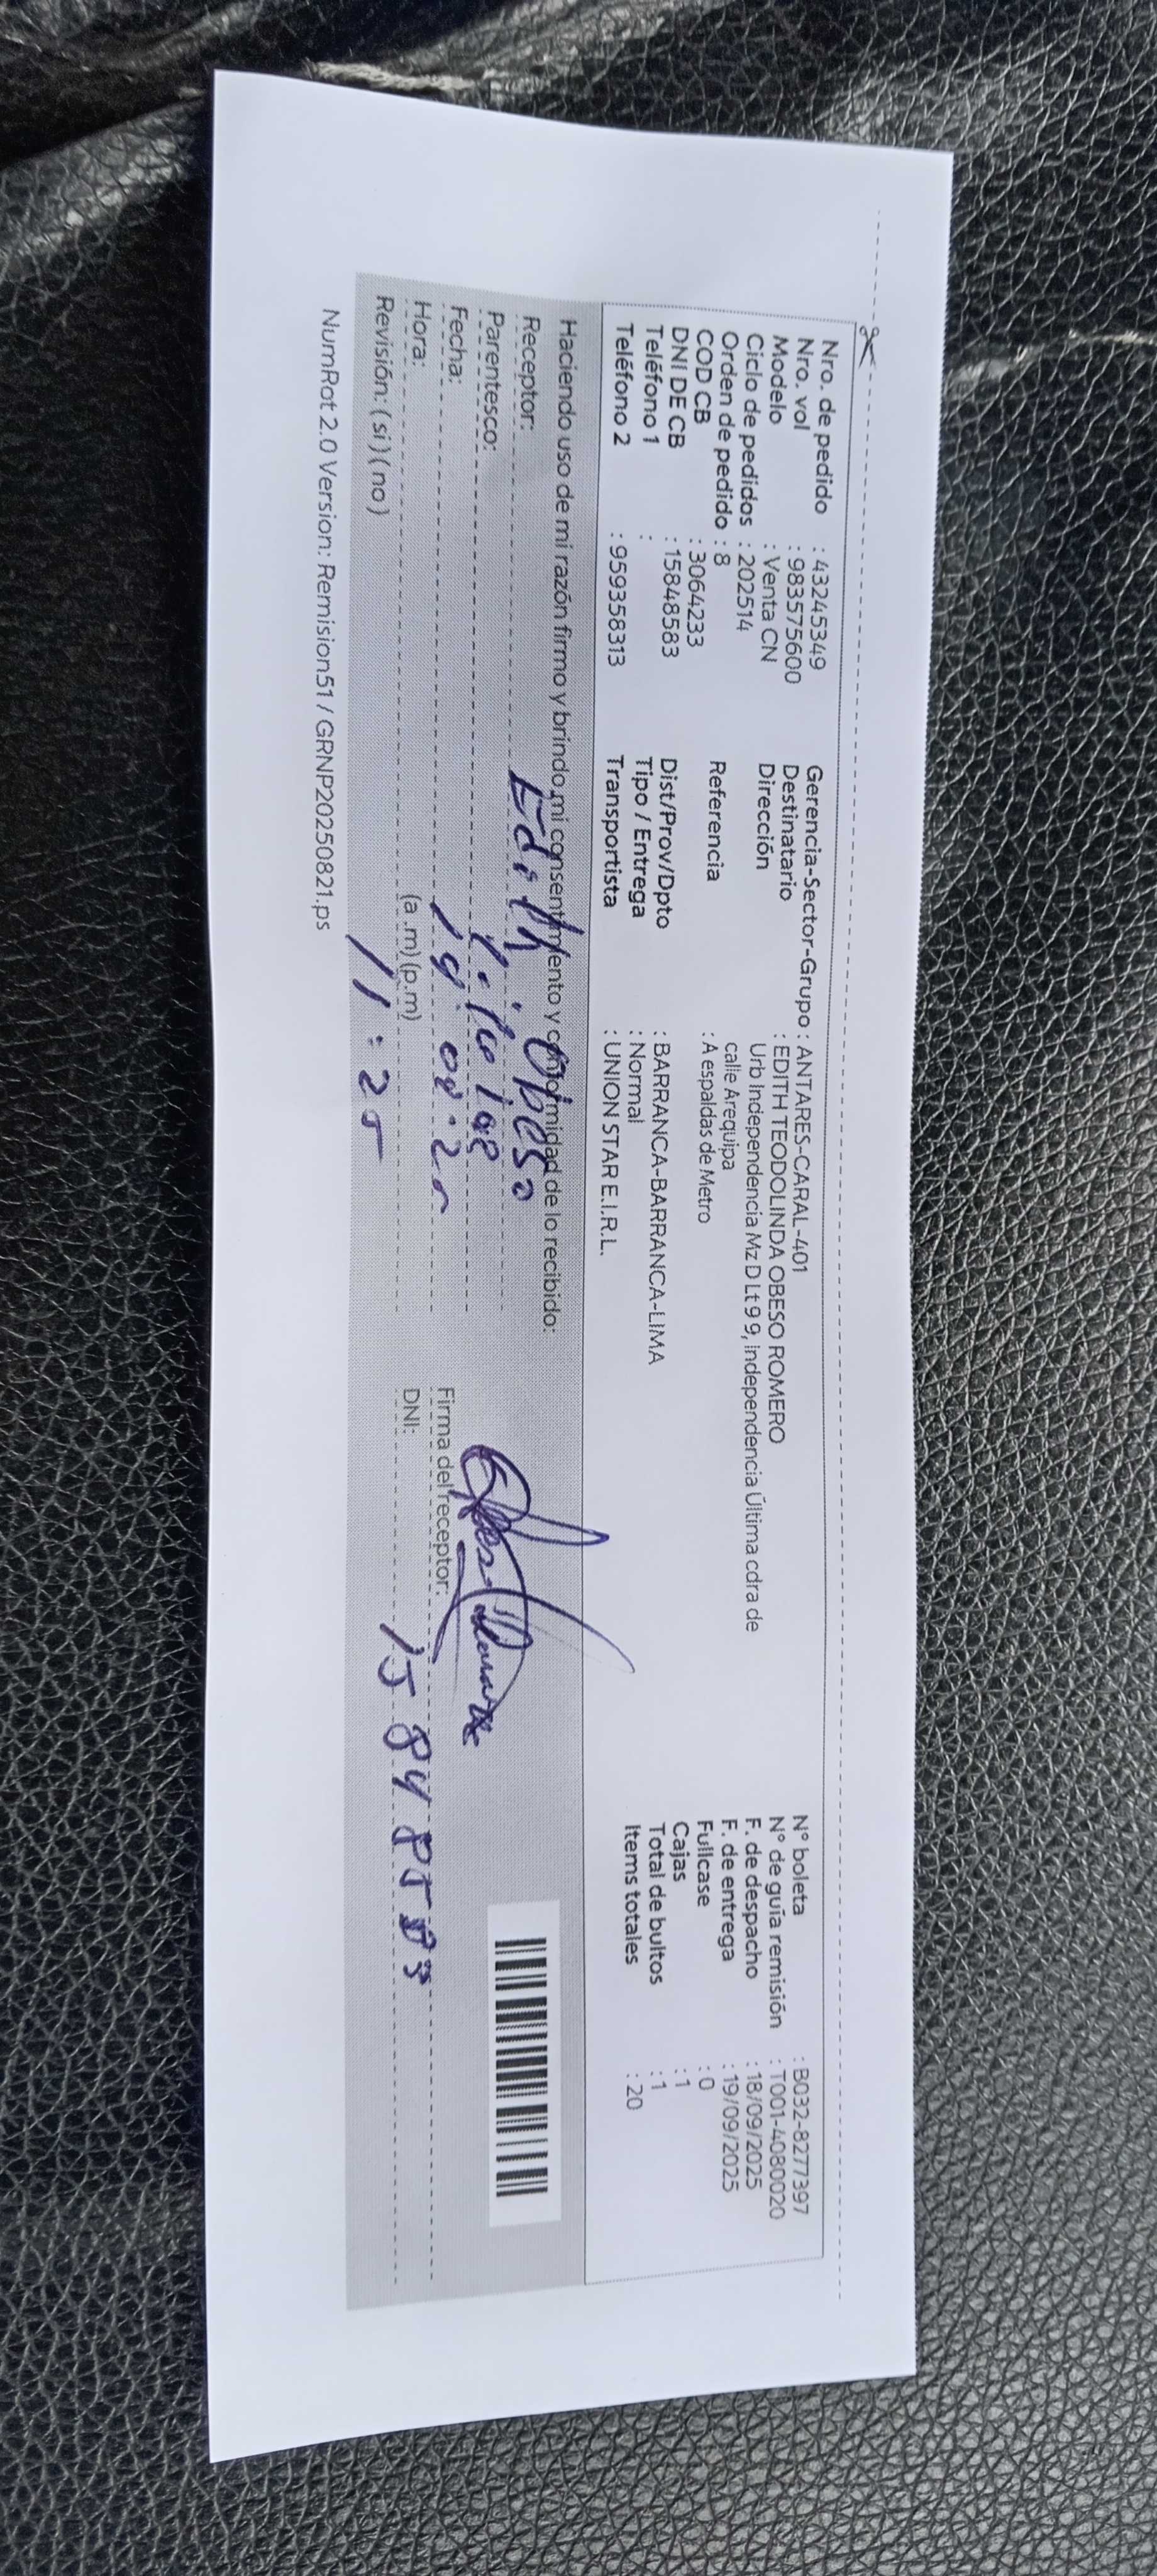 Nro. de pedido : 43245349
Nro. vol : 983575600
Modelo : Venta CN
Ciclo de pedidos : 202514
Orden de pedido : 8
COD CB : 3064233
DNI DE CB : 15848583
Teléfono 1 :
Teléfono 2 : 959358313
Gerencia-Sector-Grupo : ANTARES-CARAL-401
Destinatario : EDITH TEODOLINDA OBESO ROMERO
Dirección Urb Independencia Mz D Lt 9 9, independencia Última cdra de
calle Arequipa
Referencia : A espaldas de Metro
Dist/Prov/Dpto : BARRANCA-BARRANCA-LIMA
Tipo / Entrega : Normal
Transportista : UNION STAR E.I.R.L.
N° boleta : B032-8277397
N° de guía remisión : T001-4080020
F. de despacho : 18/09/2025
F. de entrega : 19/09/2025
Fullcase : 0
Cajas : 1
Total de bultos : 1
Items totales : 20
Haciendo uso de mi razón firmo y brindo mi consentimiento y conformidad de lo recibido:
Receptor: Edith Obeso
Parentesco: Titular
Fecha:
Hora: (a.m) (p.m)
11:25
Revisión: ( si ) ( no )
Firma del receptor:
DNI: 15848583
NumRot 2.0 Version: Remision51 / GRNP20250821.ps